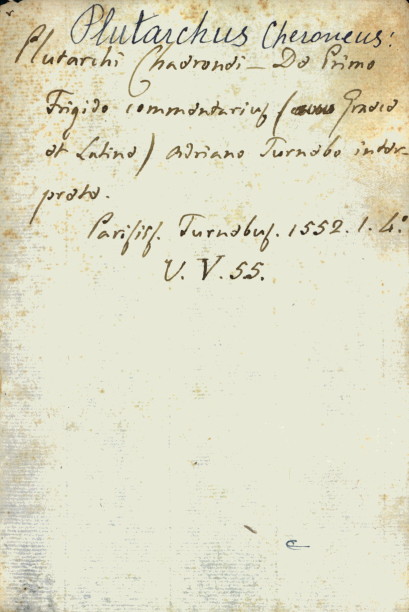 Plutarchus Cheroneus:
Plutarchi Chaerondi – De Primo
Frigido commentarius ( Graece
et Latine) Adriano Turnebo inter-
prete.
Parisiis. Turnebus. 1552. 1. 4.°
V. V. 55.